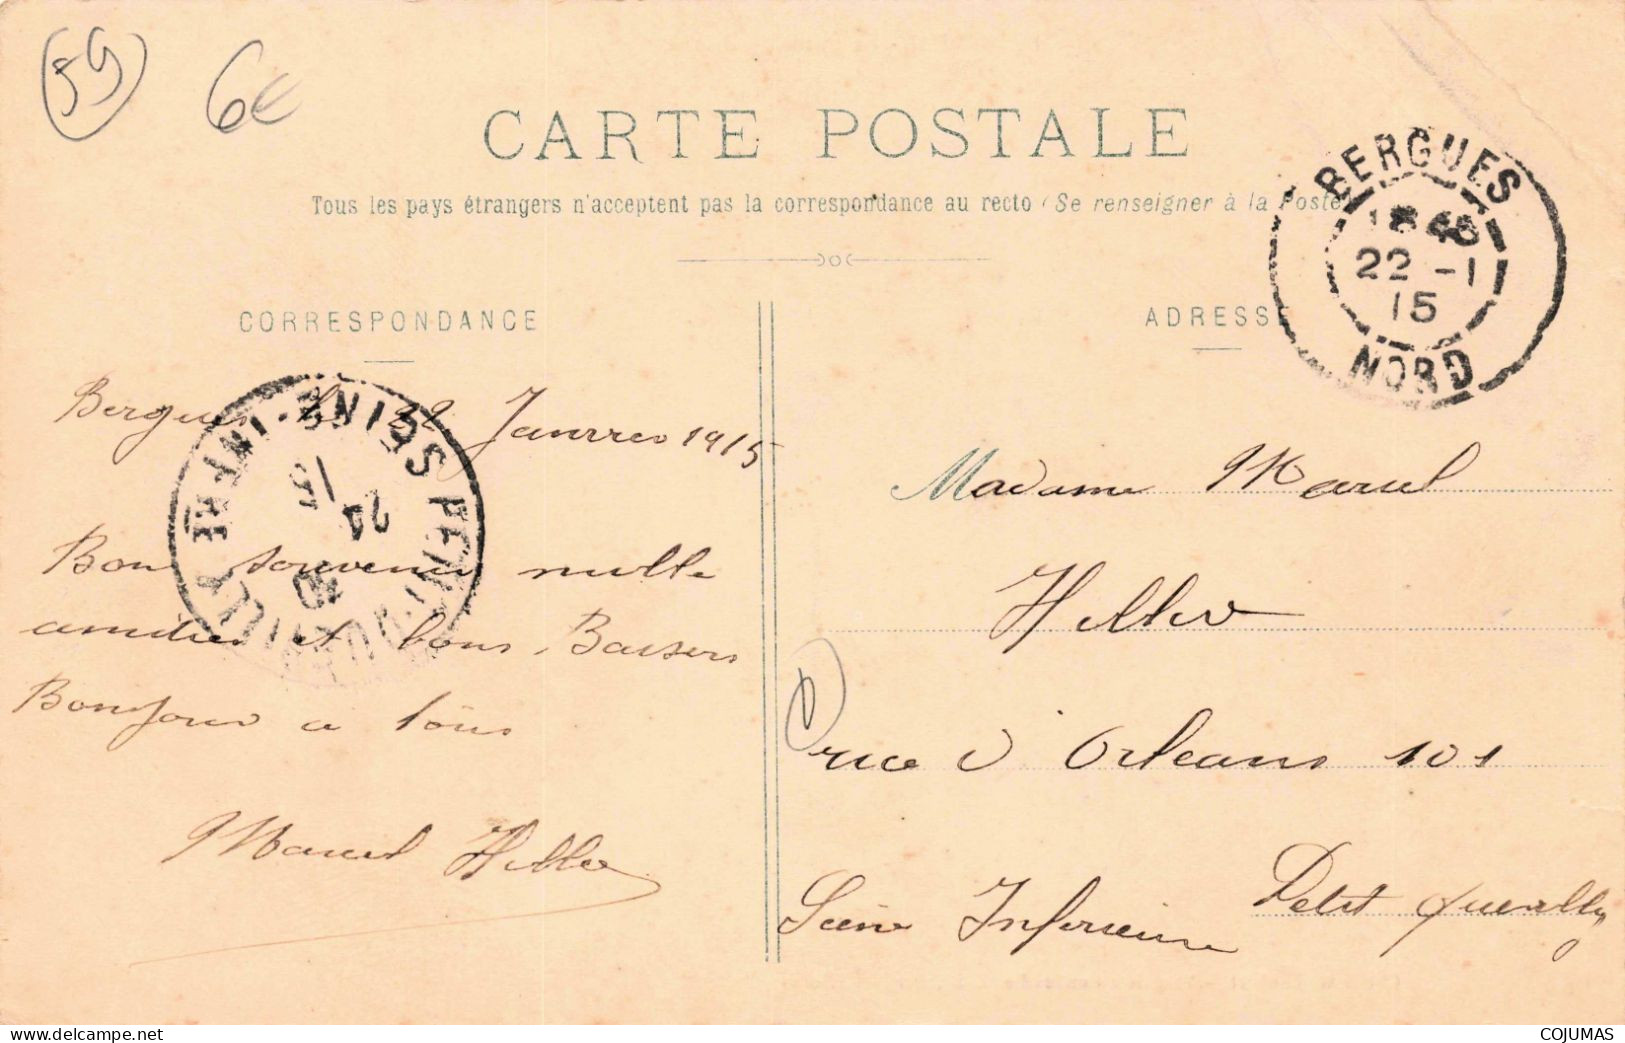 59
6€
CARTE POSTALE
Tous les pays étrangers n'acceptent pas la correspondance au recto (Se renseigner à la Poste)
BERGUES
22 - 1
15
NORD
CORRESPONDANCE
ADRESSE
Bergues le 22 Janvier 1915
Bon souvenir mille
amitiés et bons Baisers
Bonjour a tous
Marcel Heller
SEINE-INFRE
PETIT-QUEVILLY
24
Madame Marcel
Heller
rue d'Orleans 101
Petit Quevilly
Seine Inferieure
www.delcampe.net
COJUMAS